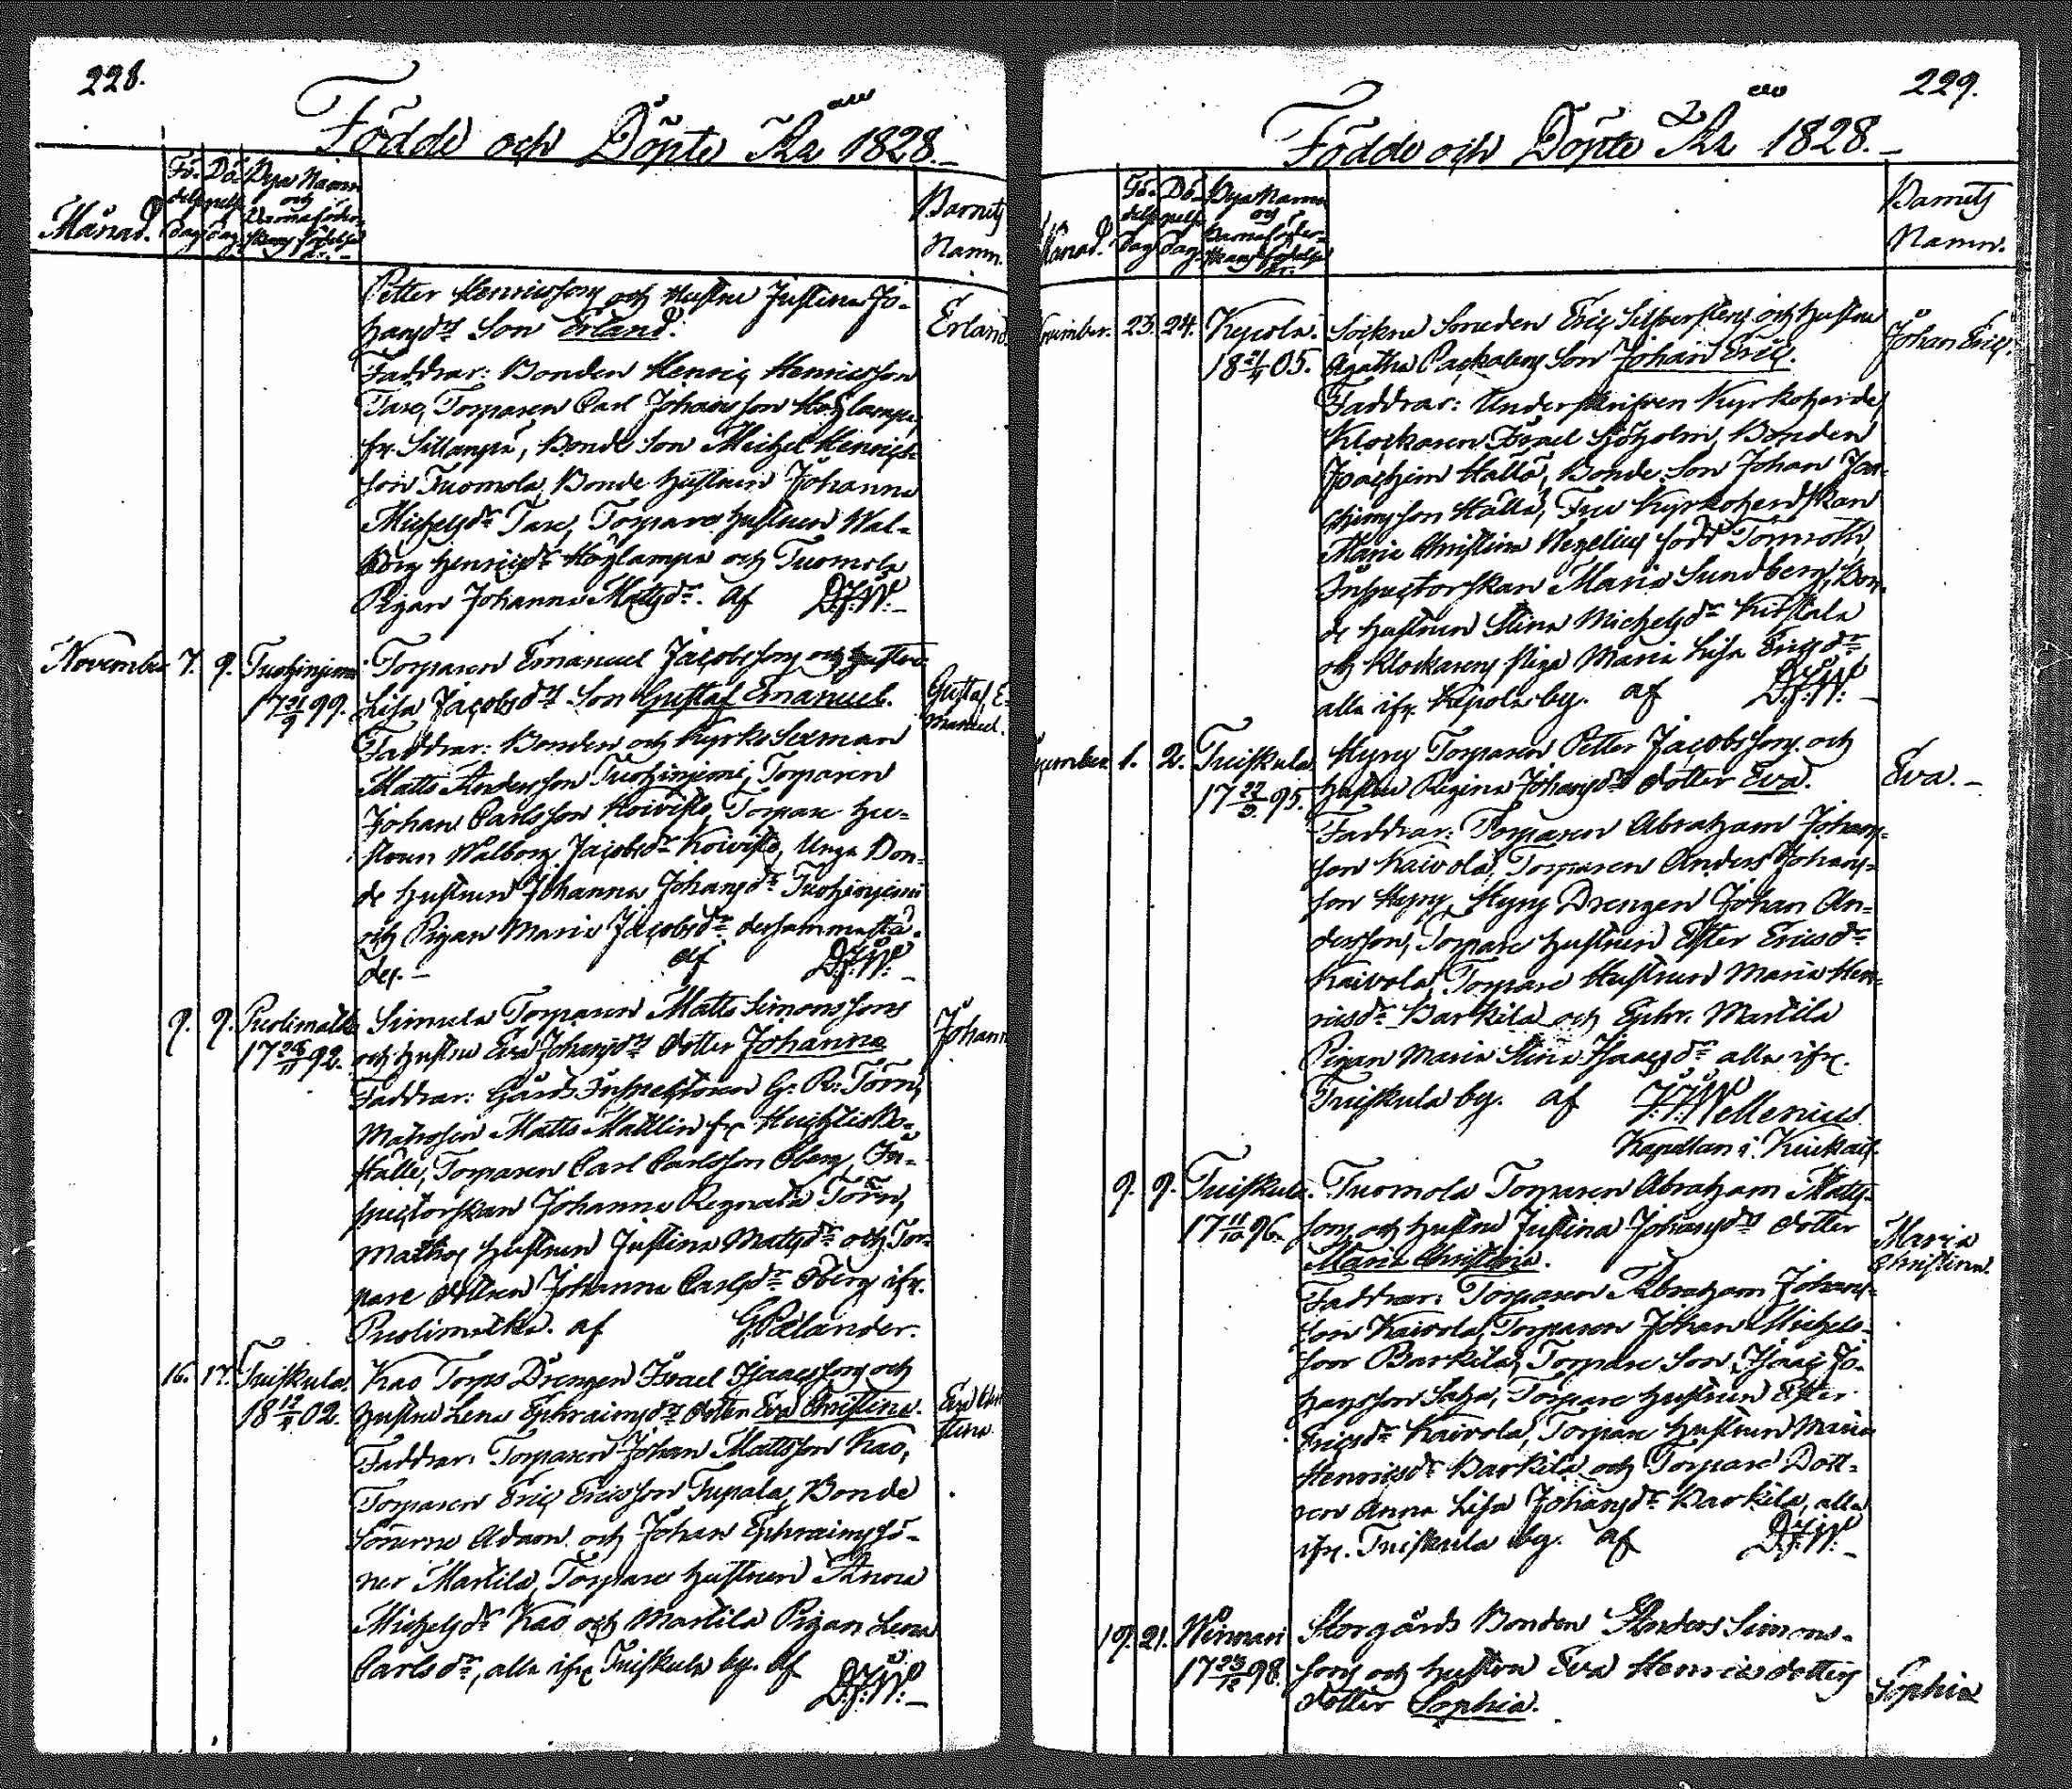 228.
Födde och Döpte Åhr 1828.
Månad.
Fö-
delse
dag
Dö-
pelse
dag.
Byа Namn
och
Barnaföder-
skans födelse
år.
Barnets
Namn.
Petter Henricssons och Hustru Justina Jo-
hansdrs Son Erland.
Erland.
Faddrar: Bonden Henric Henricsson
Tare, Torparen Carl Johansson
fr. Sillanpä, Bonde Son Michel Henrics-
son Tuomola, Bonde hustrun Johanna
Michelsdr Tare, Torpare hustrun Wal-
borg Henricsdr och Tuomola
Pigan Johanna Matsdr. af D.F.W.
November 7. 9.
17 21/9 99.
Torparen Emanuel Jacobssons och hustru
Lisa Jacobsdrs Son Gustaf Emanuel.
Gustaf E-
manuel.
Faddrar: Bonden och Kyrko Sexman
Matts Andersson Tuohiniemi, Torparen
Johan Carlsson Koivisto, Torpare hu-
strun Walborg Jacobsdr Koivisto, Unga Bon-
de hustrun Johanna Johansdr Tuohiniemi
och Pigan Maria Jacobsdr dersammastä-
des. af D.F.W.
9. 9. Puolimatka
17 92.
Simula Torparen Matts Simonssons
och hustru Eva Johansdrs dotter Johanna
Johanna
Faddrar: Gårds Inspectoren G: R: Törn,
Matrosen Matts Mattlin fr
Torparen Carl Carlsson Öberg, In-
spectorskan Johanna Regnata Törn,
Matros hustrun Justina Matsdr och Tor-
pare dottren Johanna Carlsdr Öberg ifr.
Puolimatka. af G. Pælander.
16. 17. Tuiskula.
18 02.
Kao Torps Drengen Israel Isaacssons och
hustru Lena Ephraimsdrs dotter Eva Christina.
Eva Chri
stina.
Faddrar: Torparen Johan Mattsson Kao,
Torparen Eric Ericsson Tupala, Bonde
Sönerne Adam och Johan Ephraimssö-
ner Martila, Torpare hustrun Anna
Michelsdr Kao och Martila Pigan Lena
Carlsdr, alla ifr Tuiskula by. af D.F.W.
229.
Födde och Döpte Åhr 1828.
Månad.
Fö-
delse
Dag
Dö-
pelse
Dag.
Bya Namn
och
Barnaföder-
skans födelse
år.
Barnets
Namn.
November. 23. 24. Kepola.
18 21/4 05.
Sockne Smeden Eric Silfverstens och hustru
Agatha son Johan Eric.
Johan Eric.
Faddrar: Underskrifven Kyrkoherde,
Klockaren Israel Sjöholm, Bonden
Joachim Hallä, Bonde Son Johan Joa-
chimsson Hällä, Fru Kyrkoherdskan
Maria Christina Wegelius född Törnroth,
Inspectorskan Maria Sundberg, Bon-
de hustrun Stina Michelsdr
och Klockarens piga Maria Lisa Ericsdr
alla ifr. Kepola by. af D.F.W.
December 1. 2. Tuiskula
17 22/3 95.
Hyny Torparen Petter Jacobssons och
hustru Regina Johansdrs dotter Eva.
Eva.
Faddrar: Torparen Abraham Johans-
son Kaivola, Torparen Anders Johans-
son Hyny, Hyny Drengen Johan An-
dersson, Torpare hustrun Ester Ericsdr
Kaivola, Torpare Hustrun Maria Hen-
ricsdr Barkila och Ephr. Martila
Pigan Maria Stina Isaacsdr alla ifr.
Tuiskula by. af Mellenius
Kapellan i Kiukais.
9. 9. Tuiskula.
17 11/10 96.
Tuomola Torparen Abraham Matts-
sons och hustru Justina Johansdrs dotter
Maria Christina.
Maria
Christina.
Faddrar: Torparen Abraham Johans-
son Kaivola, Torparen Johan Michels-
son Barkila, Torpare Son Isaac Jo-
hansson Saha, Torpare hustrun Ester
Ericsdr Kaivola, Torpare hustrun Maria
Henricsdr Barkila och Torpare Dott-
ren Anna Lisa Johansdr Barkila, alla
ifr. Tuiskula by. af D.F.W.
19. 21.
17 23/12 98.
Storgårds Bonden Anders Simons-
sons och hustru Eva Henricsdotters
dotter Sophia.
Sophia